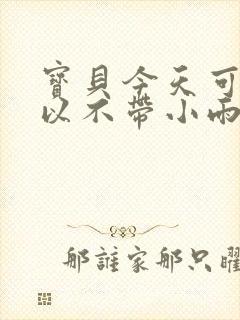 寶貝今天可
以不帶小雨
那誰家那只曜